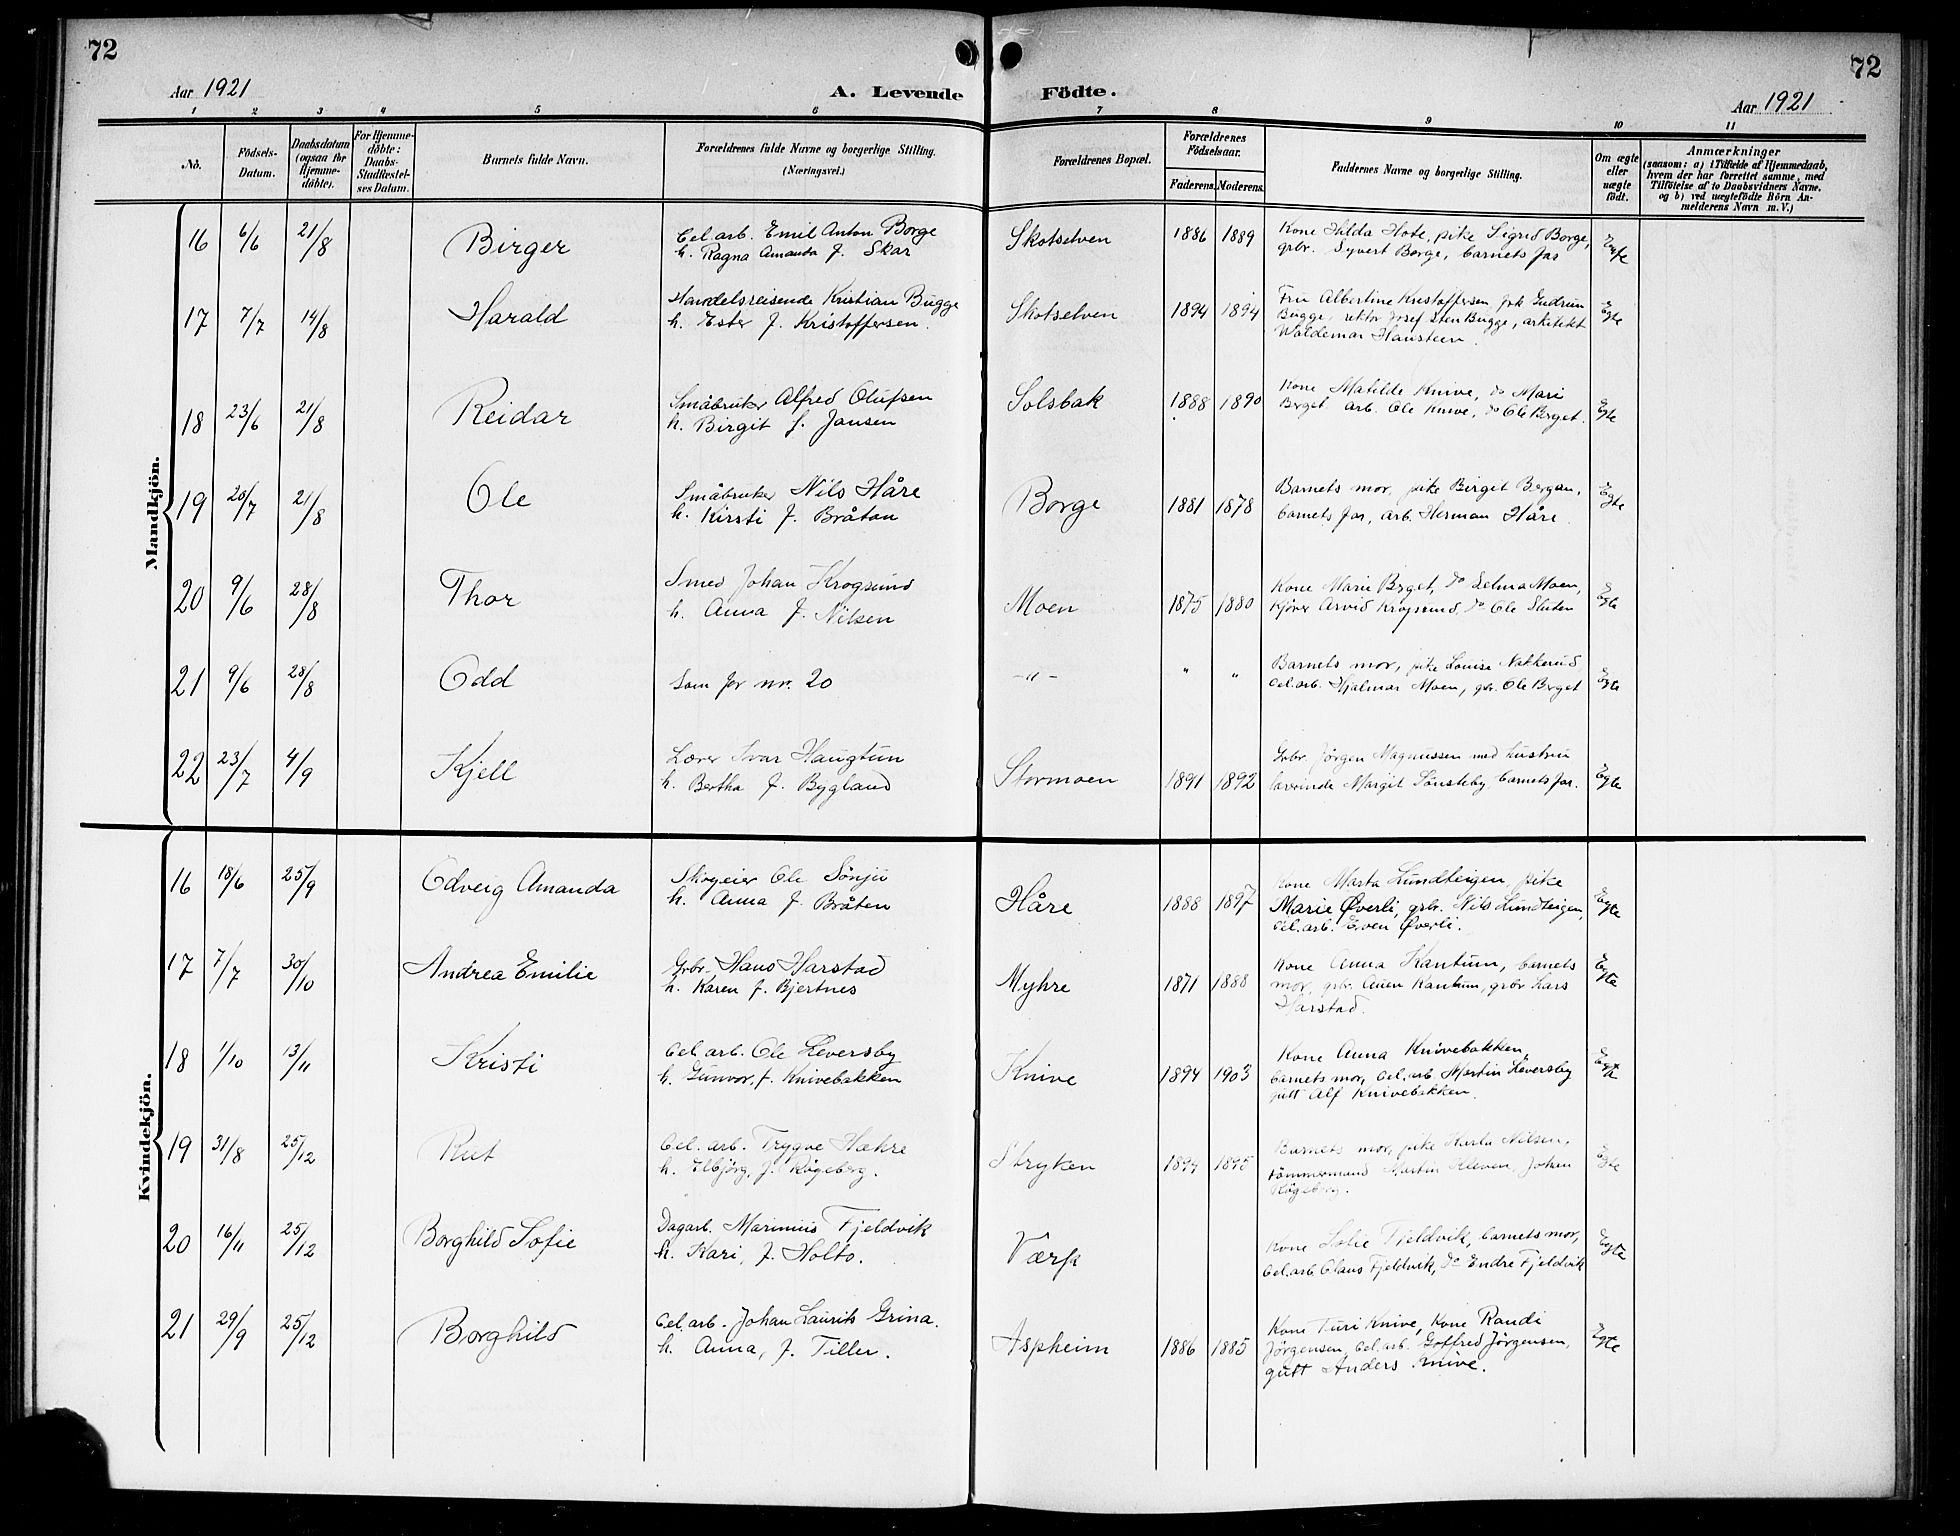 72
72
Aar 1921
A. Levende Födte.
Aar 1921
1 2 3 4 5 6 7 8 9 10 11
No.
Födsels-Datum.
Daabsdatum (ogsaa for Hjemmedöbte).
For Hjemmedöbte: Daabs-Stadfæstelses Datum.
Barnets fulde Navn.
Forældrenes fulde Navne og borgerlige Stilling. (Næringsvei.)
Forældrenes Bopæl.
Forældrenes Födselsaar.
Faderens. Moderens.
Faddernes Navne og borgerlige Stilling.
Om ægte eller uægte födt.
Anmærkninger
(saasom: a) i Tilfælde af Hjemmedaab,
hvem der har forrettet samme, med
Tilföielse af to Daabsvidners Navne,
og b) ved uægtefödte Börn Anmelderens Navn m. V.)
Mandkjön.
16 6/6 21/8 Birger
Cel. arb. Emil Anton Borge
h. Ragna Amanda f. Skar
Skotselven 1886 1889
Kone Hilda Hote, pike Sigrid Borge,
grbr. Syvert Borge, barnets far
Egte
17 7/7 14/8 Harald
Handelsreisende Kristian Bugge
h. Ester f. Kristoffersen.
Skotselven 1894 1894
Fru Albertine Kristoffersen, frk Gudrun
Bugge, rektor Josef Sten Bugge, arkitekt
Waldemar Hansteen.
Egte
18 23/6 21/8 Reidar
Småbruker Alfred Olufsen
h. Birgit f. Jansen
Solsbak 1888 1890
Kone Matilde Knive, do Mari
Berget arb. Ole Knive, do Ole Berget.
Egte
19 20/7 21/8 Ole
Småbruker Nils Håre
h. Kirsti f. Bråtan
Borge 1881 1878
Barnets mor, pike Birgit Bergan,
barnets far, arb. Herman Håre.
Egte
20 9/6 28/8 Thor
Smed Johan Krogsund
h. Anna f. Nilsen
Moen 1875 1880
Kone Marie Berget, do Selma Moen,
kjörer Arvid Krogsund, do Ole Sluten
Egte
21 9/6 28/8 Odd
Som for nr. 20
-"- " "
Barnets mor, pike Louise Nakkerud,
Cel. arb. Hjalmar Moen, grb. Ole Berget
Egte
22 23/7 4/9 Kjell
Lærer Ivar Haugtun
h. Bertha f. Bygland
Stormoen 1891 1892
Grbr. Jörgen Magnussen med hustru
lærerinde Margit Sönsteby, barnets far.
Egte
Kvindekjön.
16 18/6 25/9 Odveig Amanda
Skogeier Ole Sönju
h. Anna f. Bråten
Håre 1888 1897
Kone Marta Lundteigen, pike
Marie Øverli, grbr. Nils Lundteigen,
Cel. arb. Even Øverli.
Egte
17 7/7 30/10 Andrea Emilie
Grbr. Hans Harstad
h. Karen f. Bjertnes
Myhre 1871 1888
Kone Anna Kantum, barnets
mor, grbr. Auen Kantum, grbr Lars
Harstad.
Egte
18 1/10 13/11 Kristi
Cel. arb. Ole Leversby
h. Gunvor, f. Knivebakken
Knive 1894 1903
Kone Anna Knivebakken,
barnets mor, Cel. arb. Martin Leversby
gutt Alf Knivebakken.
Egte
19 31/8 25/12 Rut
Cel. arb. Trygve Hakre
h. Elbjörg, f. Rögeberg.
Stryken 1894 1895
Barnets mor, pike Harla Nilsen,
tömmermand Martin Kleven, Johan
Rögeberg.
Egte
20 16/11 25/12 Borghild Sofie
Dagarb. Marinius Fjeldvik
h. Kari, f. Holto.
Værp
Kone Sofie Fjeldvik, barnets mor,
Cel. arb. Claus Fjeldvik, do Endre Fjeldvik
Egte
21 29/9 25/12 Borghild
Cel. arb. Johan Laurits Grina.
h. Anna, f. Tiller.
Aspheim 1886 1885
Kone Turi Knive, Kone Randi
Jörgensen, Cel. arb. Gotfred Jörgensen,
gutt Anders Knive.
Egte